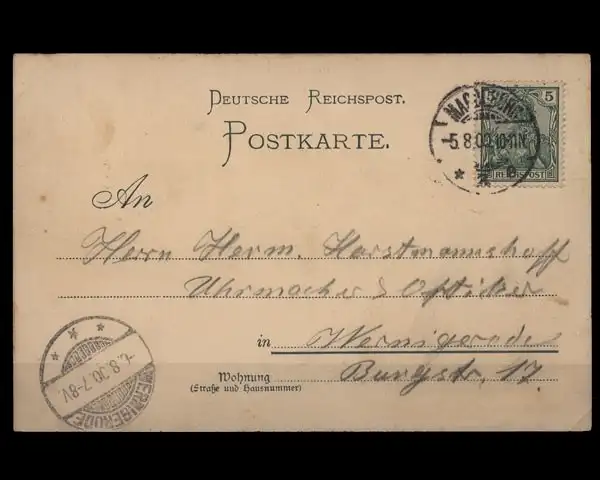 Deutsche Reichspost.
Postkarte.
5
REICHSPOST
5.8.00.10-11N.
An
Herrn Herm. Horstmannshoff
Uhrmacher & Optiker
in Wernigerode
Wohnung Burgstr. 17
(Straße und Hausnummer)
WERNIGERODE
6.8.00.7-8V.